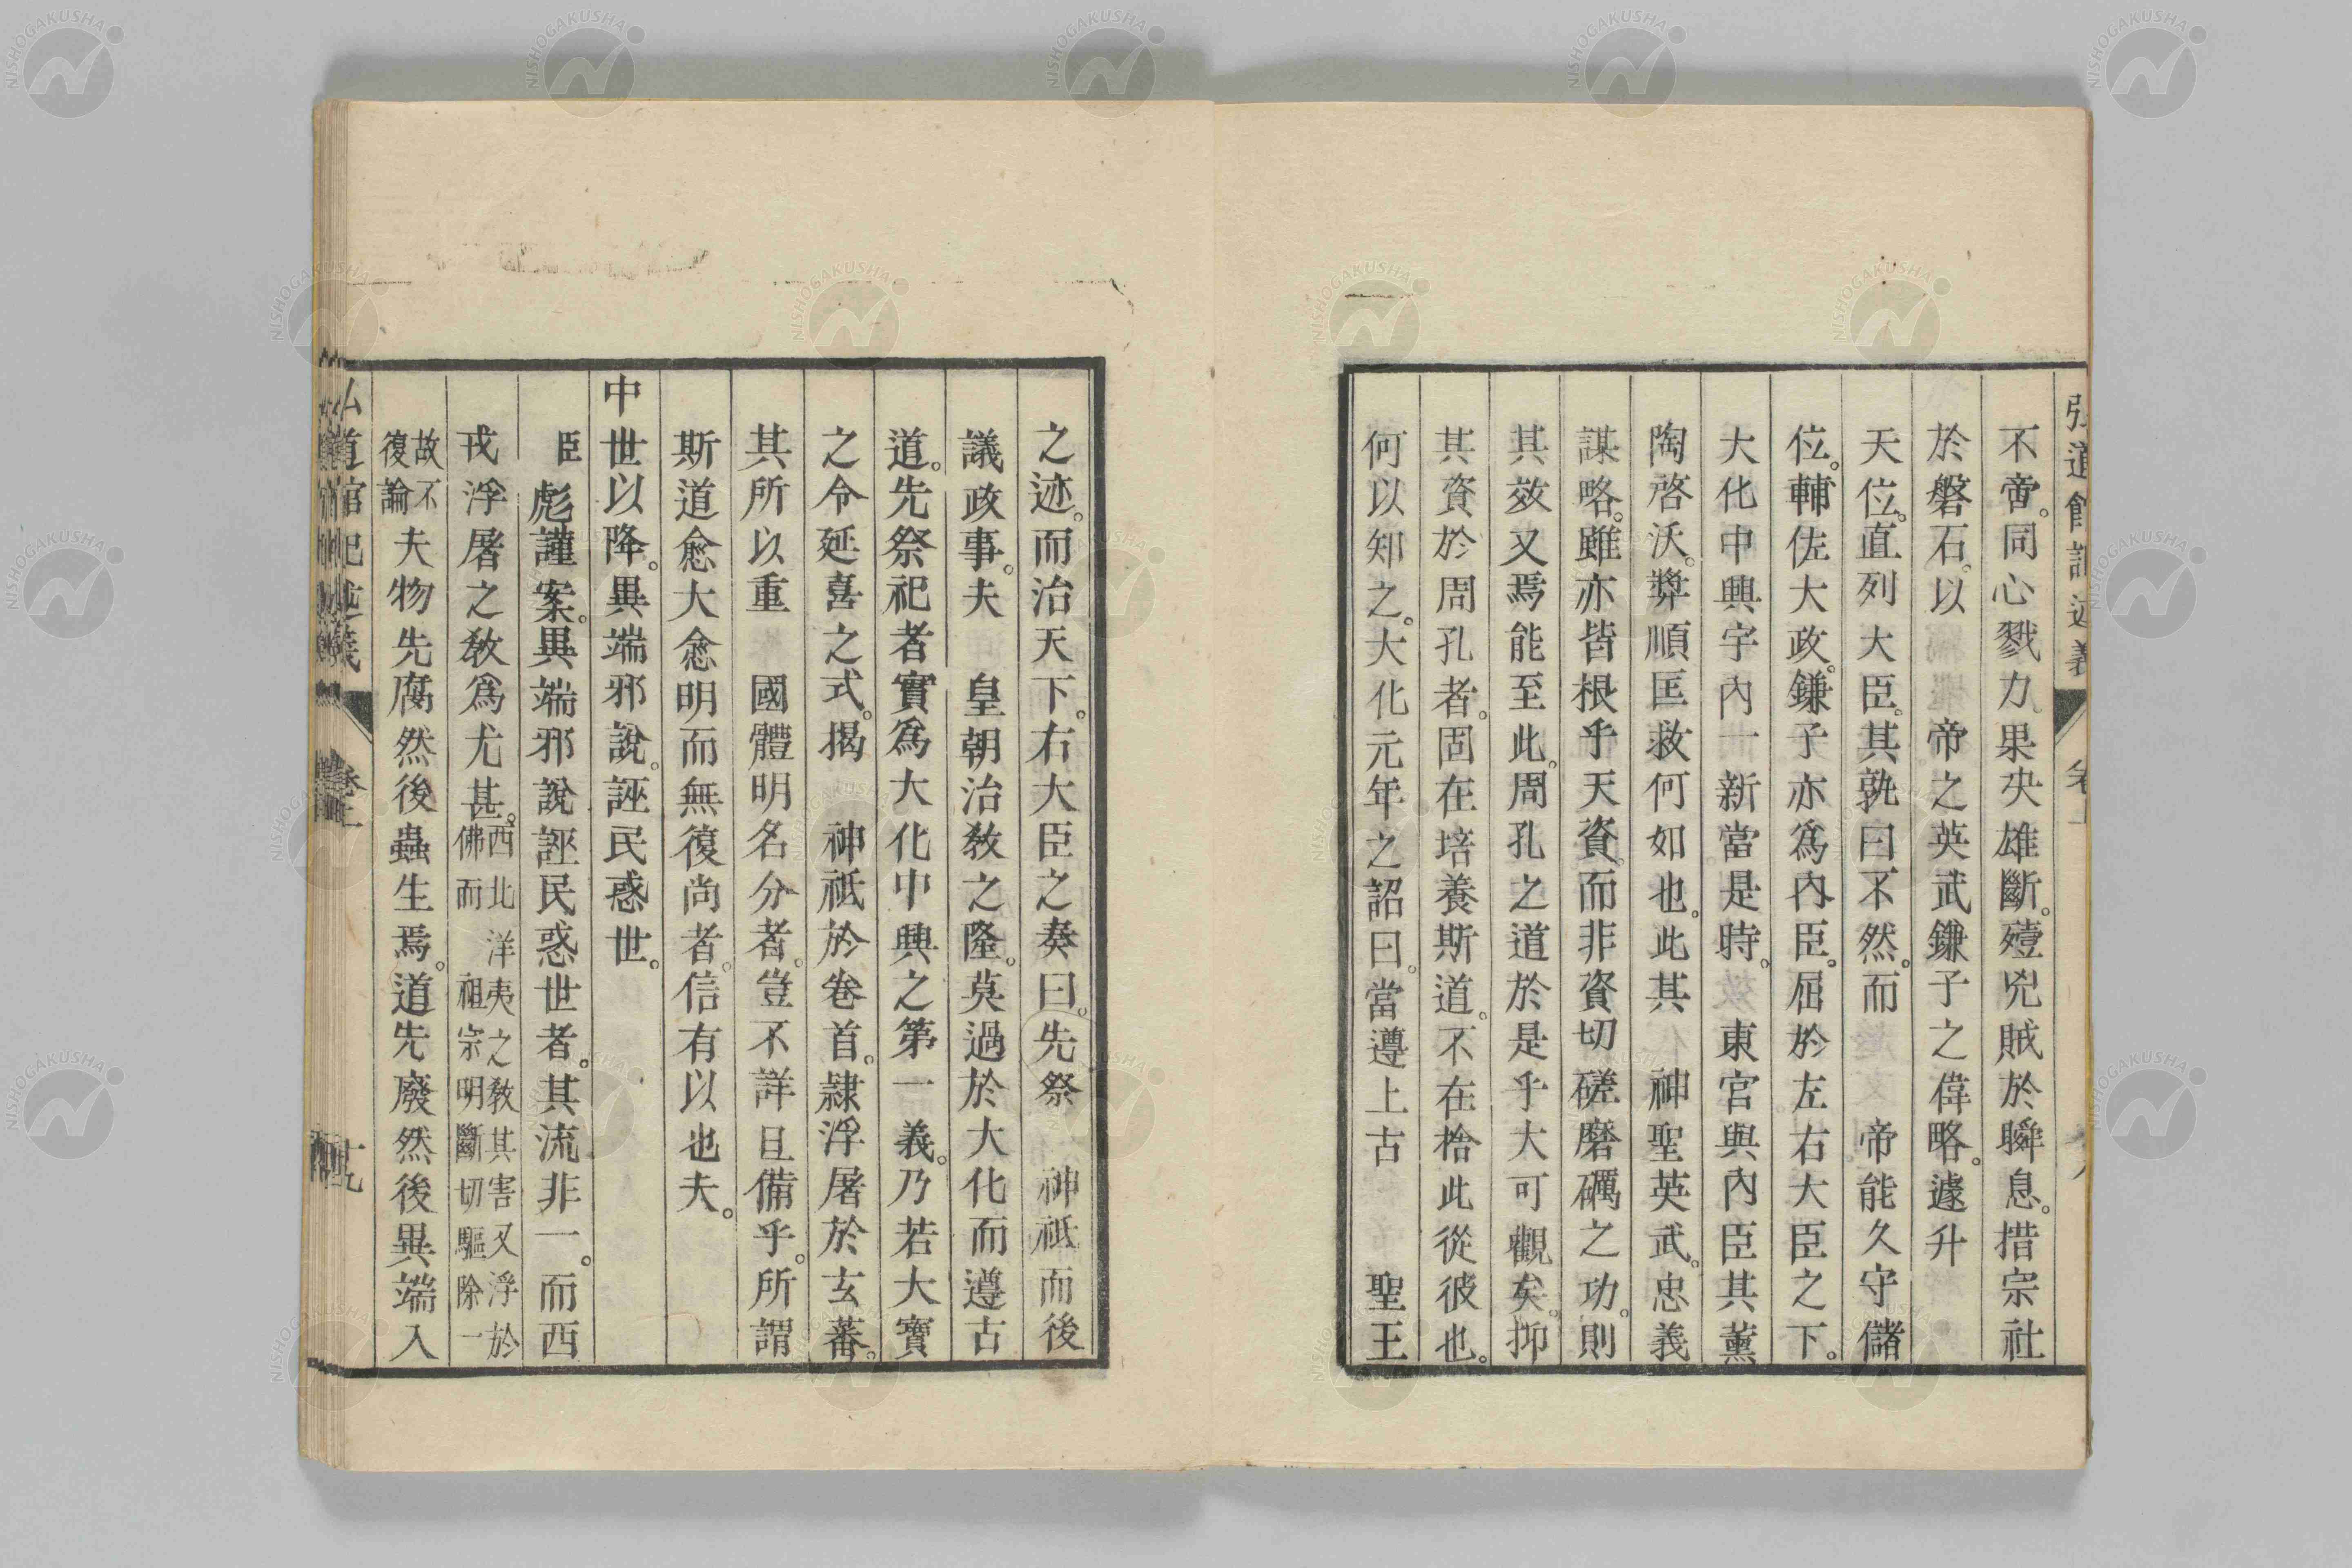 弘道館記述義 卷上
不啻。同心戮力。果夬雄斷。殪兇賊於瞬息。措宗社
於磐石。以 帝之英武鎌子之偉略。遽升
天位。直列大臣。其孰曰不然。而 帝能久守儲
位。輔佐大政。鎌子亦爲內臣。屈於左右大臣之下。
大化中興宇內一新當是時。 東宮與內臣其薰
陶啓沃。奬順匡救何如也。此其 神聖英武。忠義
謀略。雖亦皆根乎天資。而非資切磋磨礪之功。則
其效又焉能至此。周孔之道於是乎大可觀矣。抑
其資於周孔者。固在培養斯道。不在捨此從彼也。
何以知之。大化元年之詔曰。當遵上古 聖王
之迹。而治天下。右大臣之奏曰。先祭 神祇而後
議政事。夫 皇朝治教之隆。莫過於大化而遵古
道。先祭祀者實爲大化中興之第一義。乃若大寶
之令延喜之式。揭 神祇於卷首。隷浮屠於玄蕃。
其所以重 國體明名分者。豈不詳且備乎。所謂
斯道愈大愈明而無復尚者。信有以也夫。
中世以降。異端邪說。誣民惑世。
臣彪謹案。異端邪說誣民惑世者。其流非一。而西
戎浮屠之教爲尤甚。西北洋夷之教其害又浮於佛而 祖宗明斷切驅除一
故不復論夫物先腐然後蟲生焉。道先廢然後異端入
弘道館記述義 卷上 十九
NISHOGAKUSHA